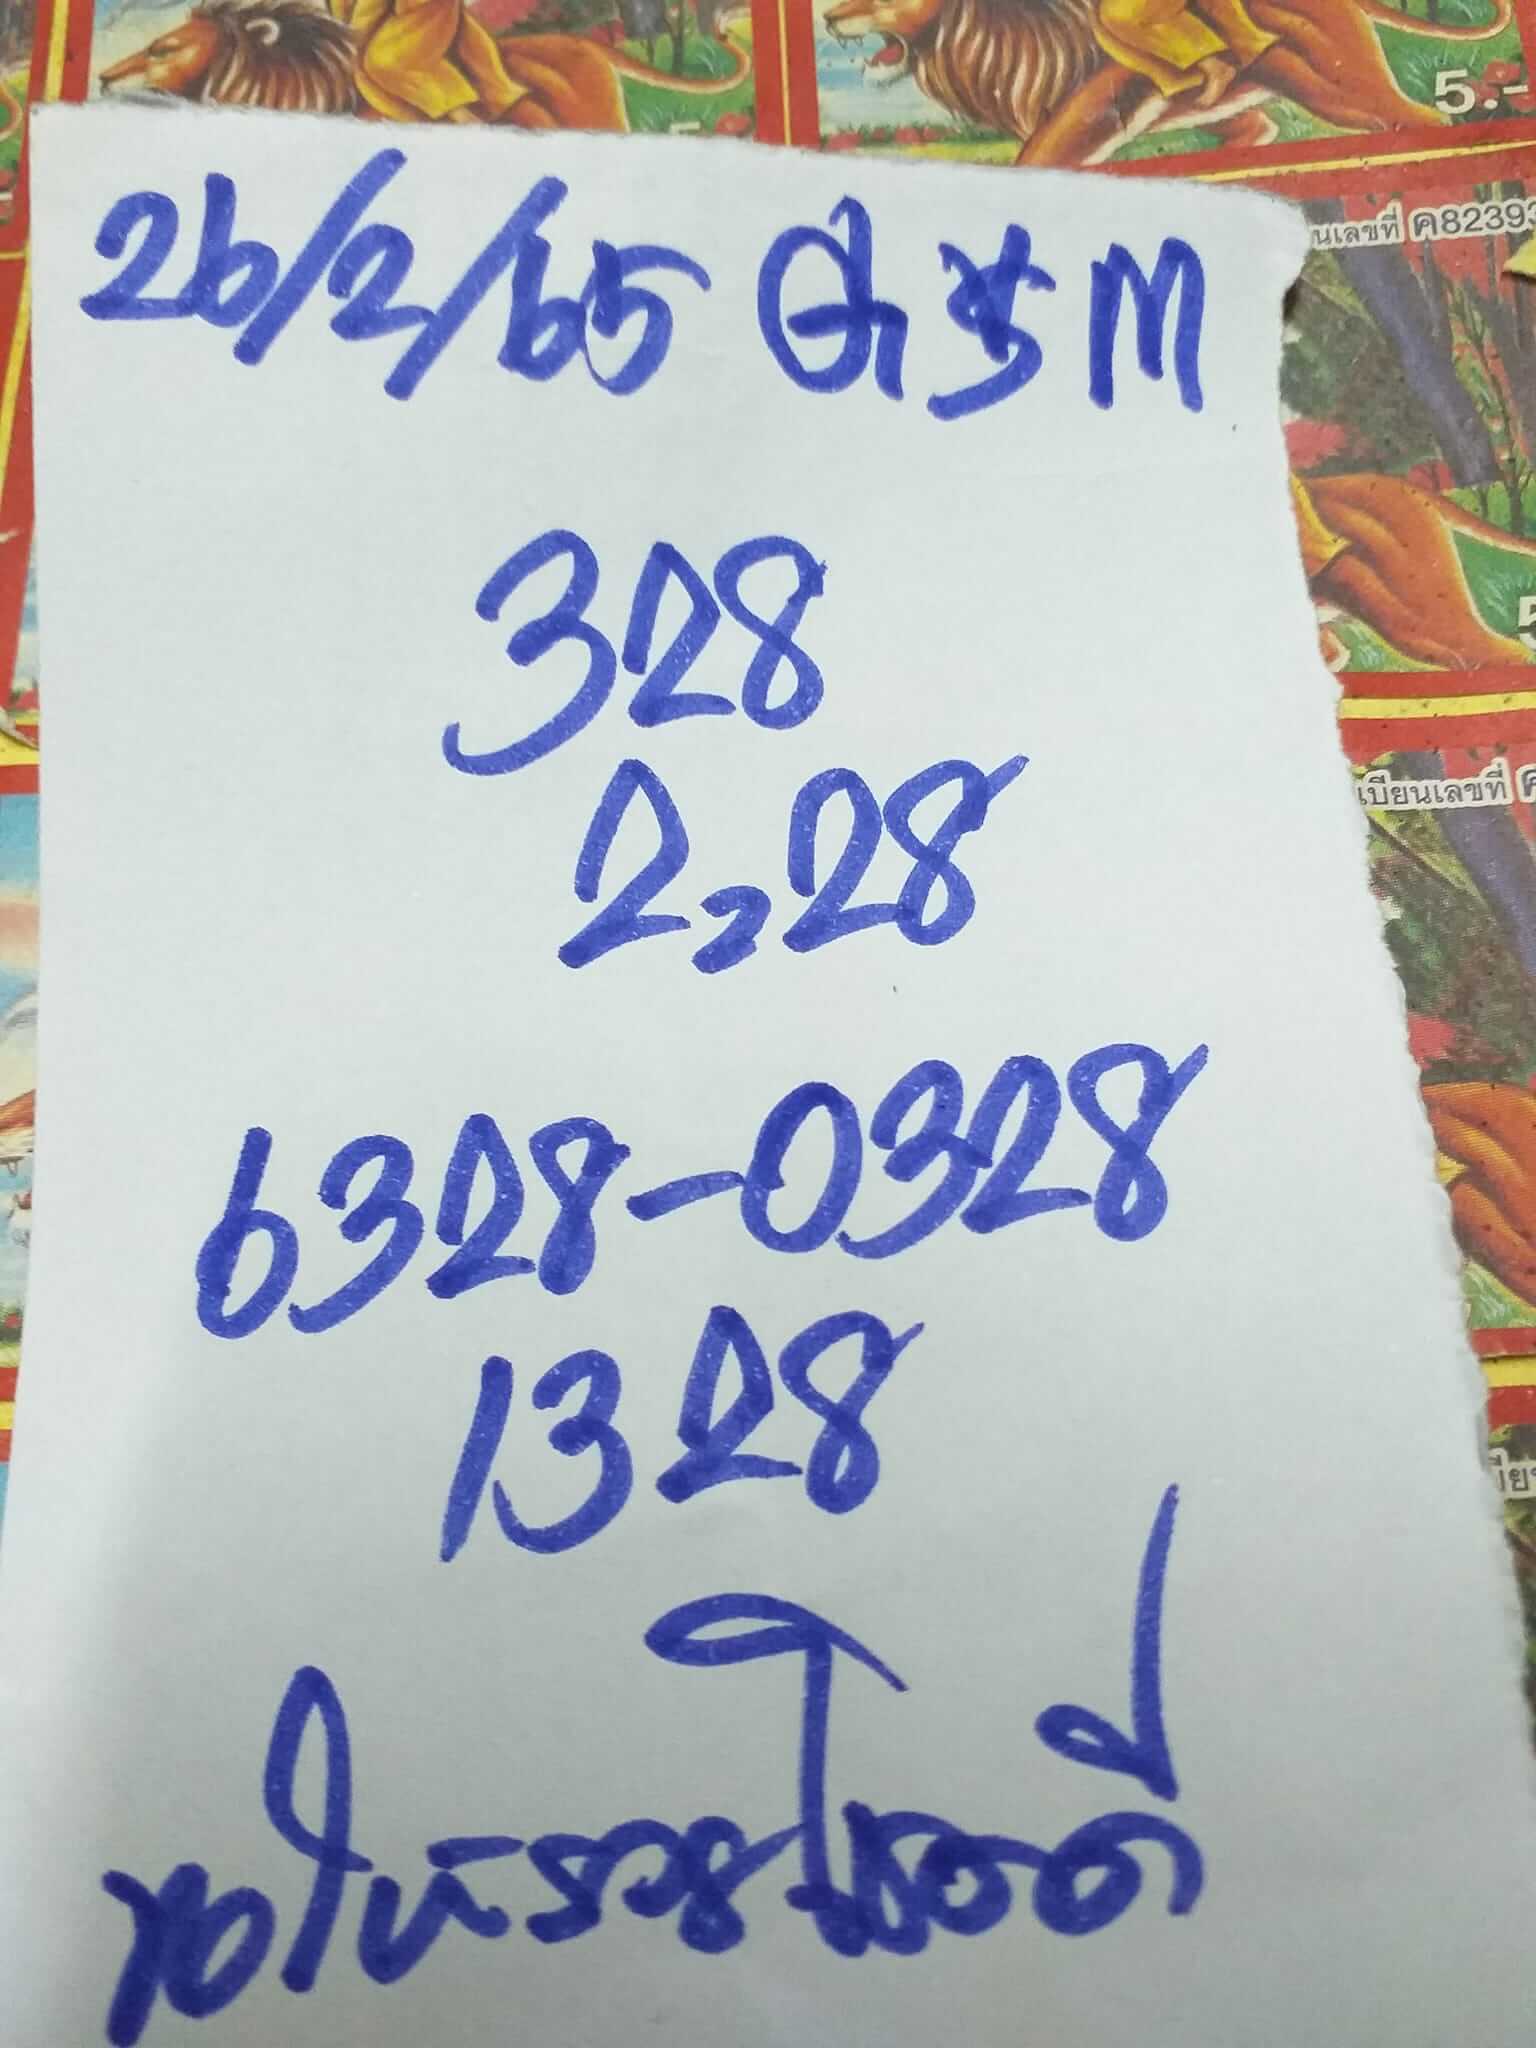 5.-
นเลขที่ ค8239
26/2/65
328
2,28
เบียนเลขที่ ค
6328-0328
1328
ขอให้รวยโชคดี